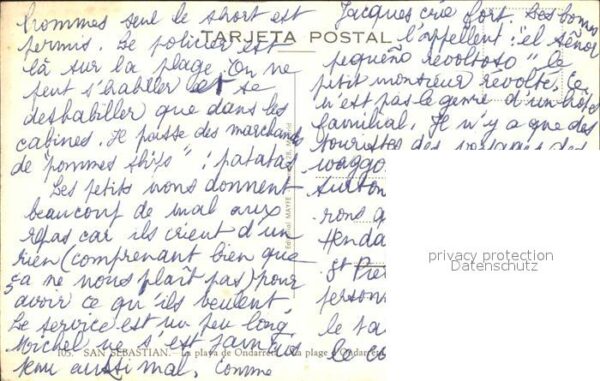 hommes seul le short est
permis. Le policier est
TARJETA POSTAL
là sur la plage. On ne
peut s'habiller et se
déshabiller que dans les
cabines. Il passe des marchands
de "pommes ships" : patatas
Les petits nous donnent
beaucoup de mal aux
repas car ils crient d'un
rien (comprenant bien que
ça ne nous plaît pas) pour
avoir ce qu'ils veulent.
Le service est un peu long.
Michel ne s'est jamais
tenu aussi mal, comme
105. SAN SEBASTIAN.—La playa de Ondarreta. La plage d'Ondarreta
Editorial MAYFE
Jacques crie fort. Les bonnes
l'appellent : "el señor
pequeño revoltoso" le
petit monsieur révolté. Ce
n'est pas le genre d'un hôtel
familial. Il n'y a que des
touristes des voyages des
waggo
surton
rons a
Henda
St Pier
person
le ta
le co
privacy protection
Datenschutz